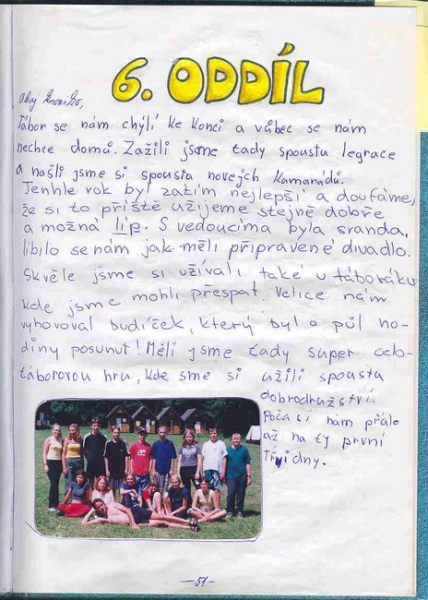 6. ODDÍL
Ahoj
Tábor se nám chýlí ke konci a vůbec se nám
nechce domů. Zažili jsme tady spoustu legrace
a našli jsme si spousta novejch kamarádů.
Tenhle rok byl zatím nejlepší a doufáme,
že si to příště užijeme stejně dobře
a možná líp. S vedoucíma byla sranda,
líbilo se nám jak měli připravené divadlo.
Skvěle jsme si užívali také u táboráku
kde jsme mohli přespat. Velice nám
vyhovoval budíček, který byl o půl ho-
diny posunut! Měli jsme tady super celo-
táborovou hru, kde sme si užili spoustu
dobrodružství.
Počasí nám přálo
až na ty první
dny.
-51-